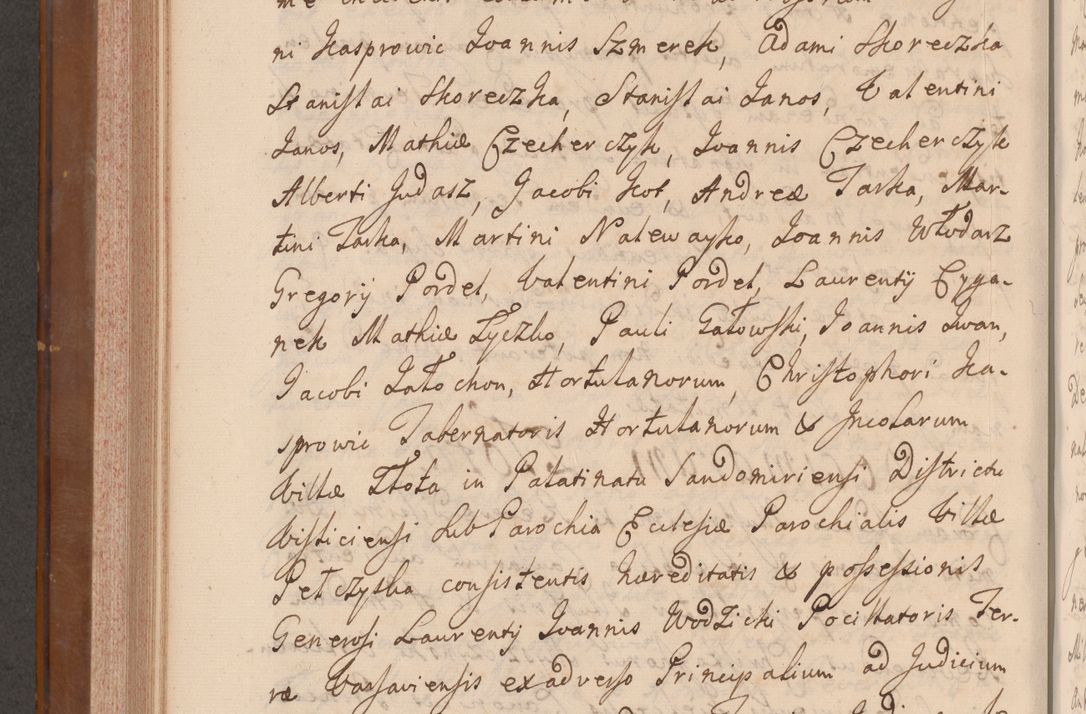 ni Kasprowic Joannis Szmerek, Adami Skoreczka
Stanislai Skoreczka, Stanislai Janos, Valentini
Janos, Mathiæ Czecherczyk, Joannis Czecherczyk
Alberti Judasz, Jacobi Kot, Andreæ Tarka, Mar-
tini Tarka, Martini Nalewayko, Joannis Włodarz
Gregorij Pordel, Valentini Pordel, Laurentij Cyga-
nek Mathiæ Łyczko, Pauli Gałowski, Joannis Iwan,
Jacobi Łałochon, Hortulanorum, Christophori Ka-
sprowic Tabernatoris Hortulanorum & Incolarum
Villæ Złota in Palatinatu Sandomiriensi Districtu
Visliciensi sub Parochia Ecclesiæ Parochialis Villæ
Pełczyska consistentis hæreditatis & possessionis
Generosi Laurentij Joannis Wodzicki Pocillatoris Ter-
ræ Varsaviensis ex adverso Principalium ad Judicium